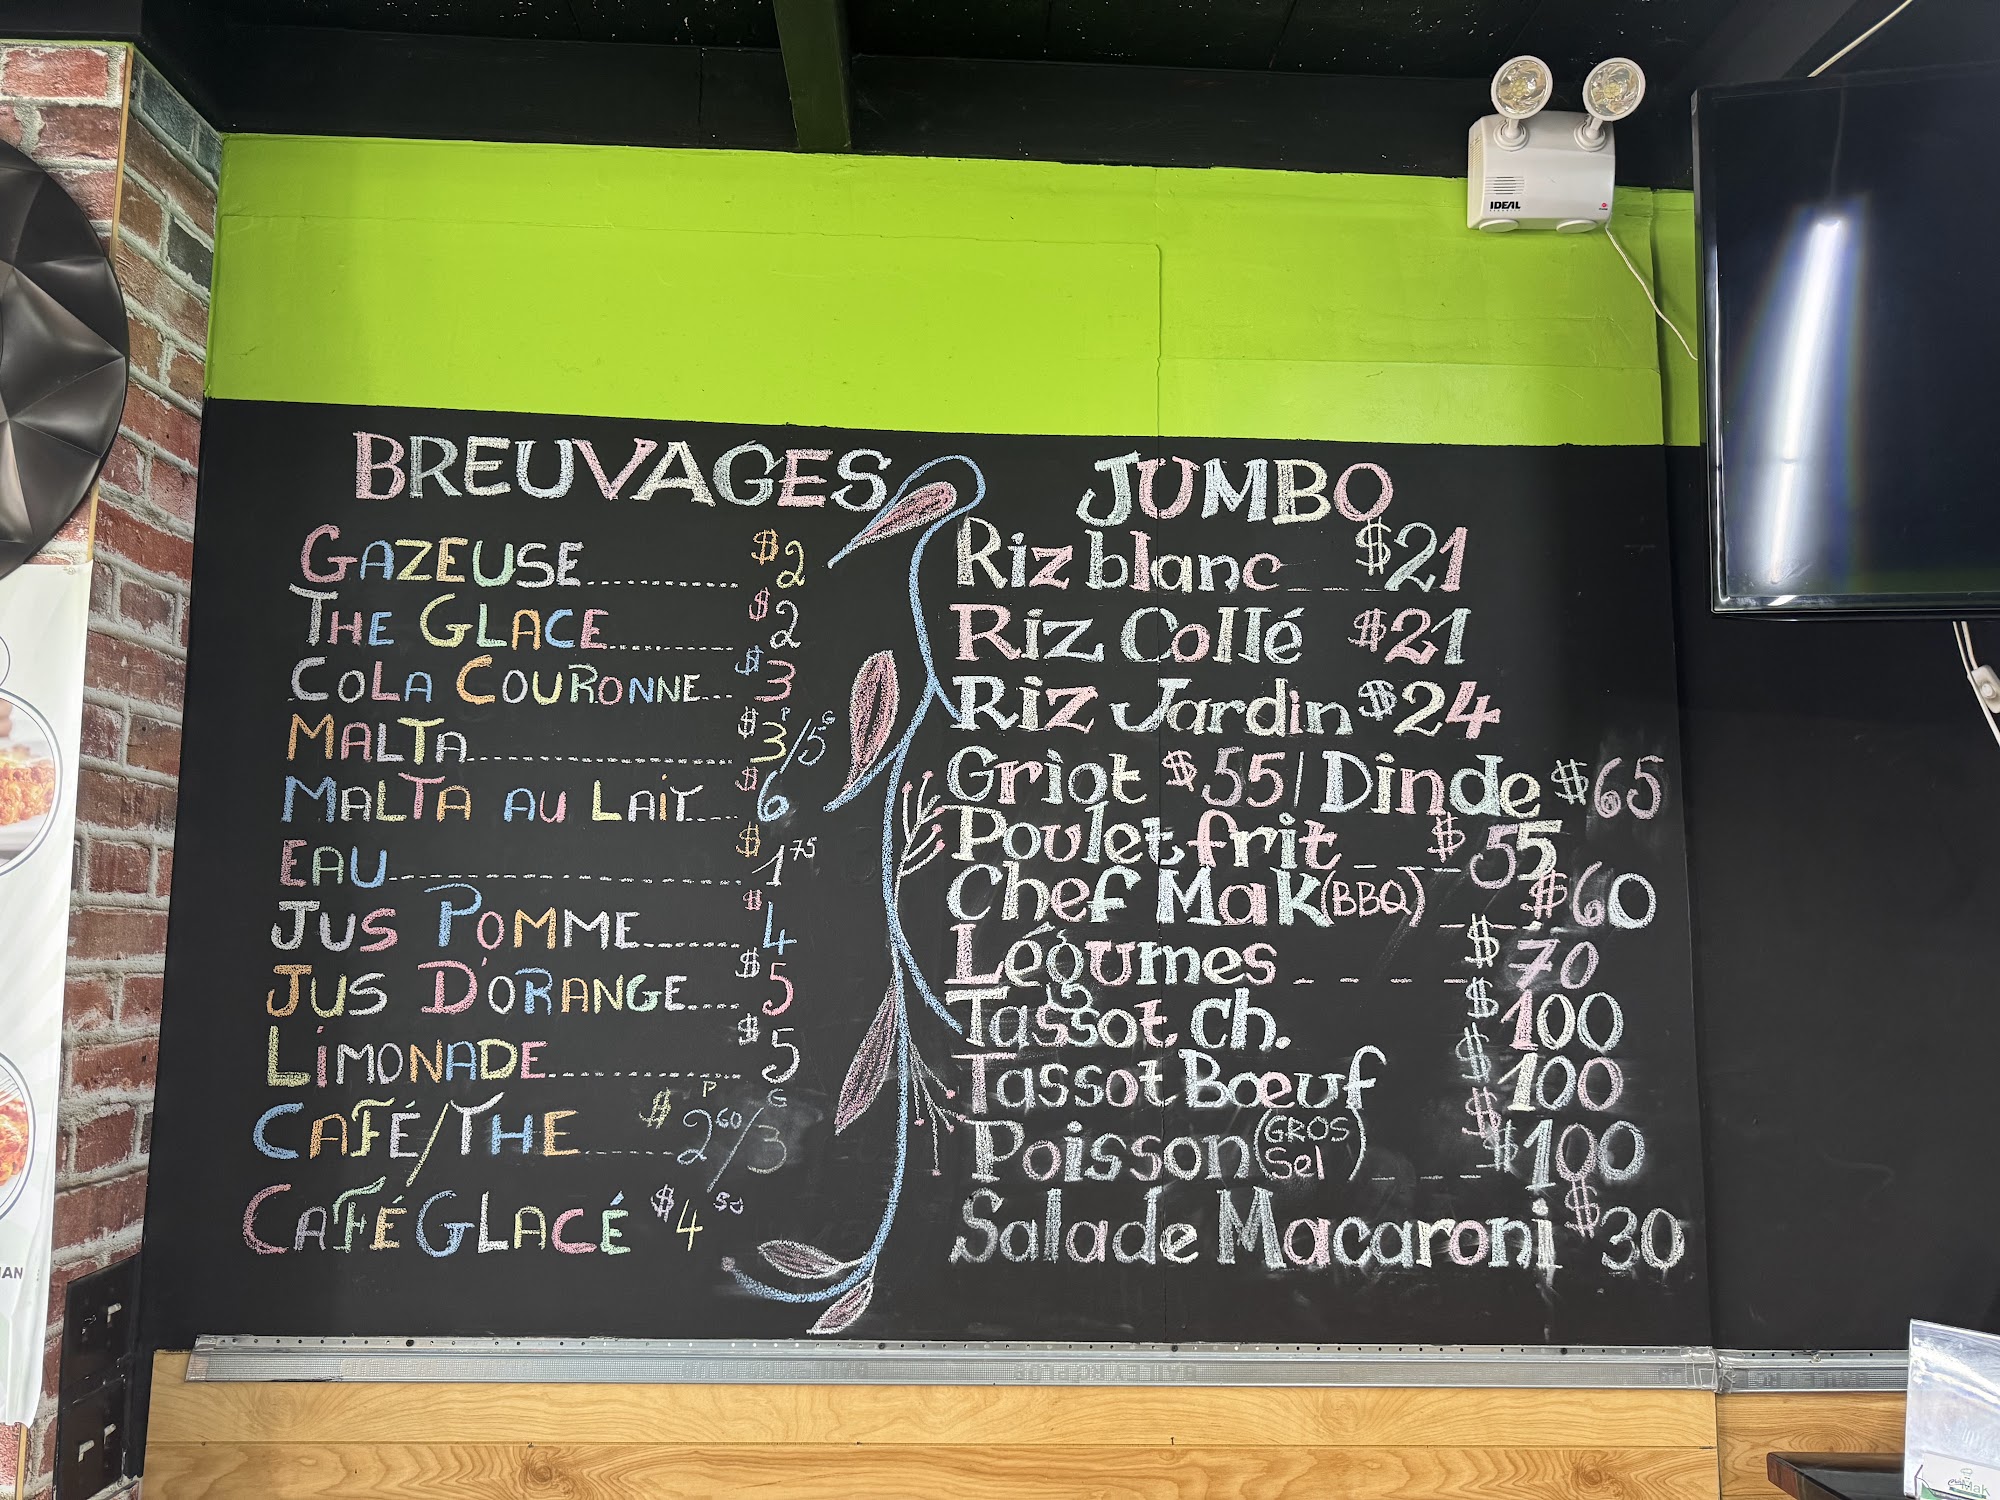 BREUVAGES
GAZEUSE $2
THE GLACE $2
COLA COURONNE $3
MALTA $3 P/5 G
MALTA AU LAIT $6
EAU $1 75
JUS POMME $4
JUS D'ORANGE $5
LIMONADE $5
CAFÉ/THE $2 60 P/3 G
CAFÉ GLACÉ $4 50
JUMBO
Riz blanc $21
Riz Collé $21
Riz Jardin $24
Griot $55/Dinde $65
Poulet frit $55
Chef Mak (BBQ) $60
Légumes $70
Tassot Ch. $100
Tassot Bœuf $100
Poisson (GROS Sel) $100
Salade Macaroni $30
IDEAL
Mak